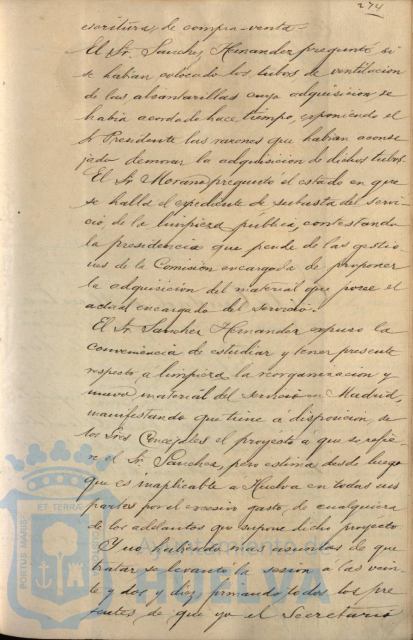 274
escritura, de compra-venta.-
El Sr. Sanchez Hernandez preguntó si
se habian colocado los tubos de ventilacion
de las alcantarillas cuya adquisicion se
había acordado hace tiempo, exponiendo el
Sr Presidente las razones que habian aconse
jado demorar la adquisicion de dichos tubos.
El Sr Morano preguntó el estado en que
se halla el expediente de subasta del servi-
cio, de la limpieza pública, contestando
la presidencia que pende de las gestio
nes de la Comisión encargada de proponer
la adquisicion del material que posee el
actual encargado del servicio.
El Sr Sanchez Hernandez expuso la
conveniencia de estudiar y tener presente
respecto a limpieza la reorganizacion y
nuevo material del servicio en Madrid,
manifestando que tiene á disposicion de
los Sres Concejales el proyecto a que se refie
re el Sr Sanchez, pero estima desde luego
que es inaplicable a Huelva en todas sus
partes por el excesivo gasto, de cualquiera
de los adelantos que supone dicho proyecto
Y no habiendo mas asuntos de que
tratar se levantó la sesion a las vein
te y dos y diez, firmando todos los pre
sentes, de que yo el Secretario
PORTUS MARIS
ET TERRAE
CUSTODIA
Ayuntamiento de
HUELVA